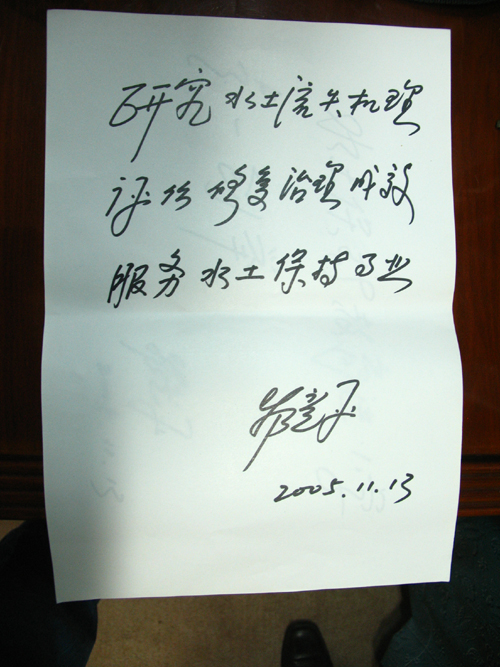 研究水土流失机理
评价修复治理成效
服务水土保持事业
2005.11.13